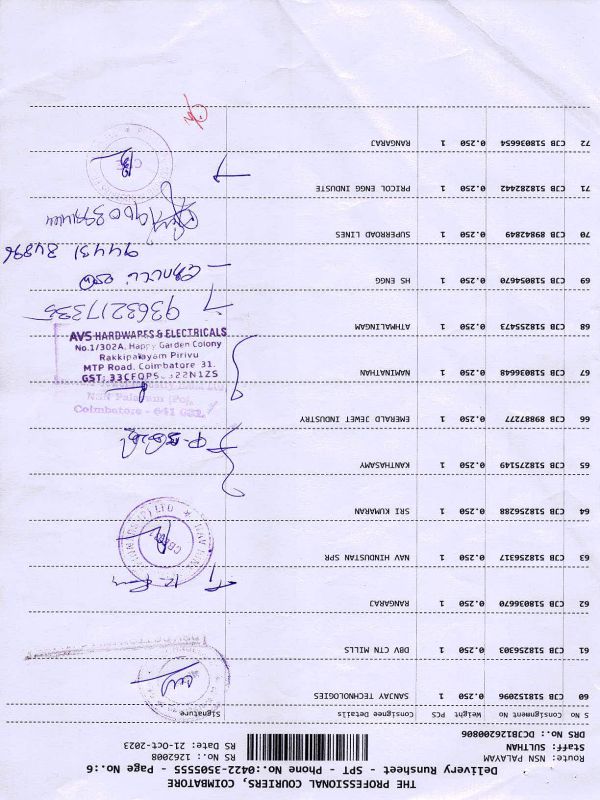 THE PROFESSIONAL COURIERS, COIMBATORE
Delivery Runsheet - SPT - Phone No.:0422-3505555 - Page No.:6
Route: NSN PALAYAM
Staff: SULTHAN
DRS No.: DCJB1262008006
RS No.: 1262008
RS Date: 21-Oct-2023
S No Consignment No Weight PCS Consignee Details Signature
60 CJB 518152096 0.250 1 SANJAY TECHNOLOGIES
61 CJB 518256303 0.250 1 DBV CTN MILLS
62 CJB 518036670 0.250 1 RANGARAJ
63 CJB 518256317 0.250 1 NAV HINDUSTAN SPR
64 CJB 518256288 0.250 1 SRI KUMARAN
65 CJB 518275149 0.250 1 KANTHASAMY
66 CJB 898877277 0.250 1 EMERALD JEWET INDUSTRY
67 CJB 518036648 0.250 1 NAMINATHAN
68 CJB 518256473 0.250 1 ATHMALINGAM
69 CJB 518054670 0.250 1 HS ENGG
70 CJB 898428849 0.250 1 SUPERROAD LINES
71 CJB 518282442 0.250 1 PRICOL ENGG INDUSTE
72 CJB 518036654 0.250 1 RANGARAJ
AVS HARDWARES & ELECTRICALS
No.1/302A, Happy Garden Colony
Rakkipalayam Pirivu
MTP Road, Coimbatore 31.
NSN Palayam (Po),
Coimbatore - 641 031.
9363217335
94431 84896